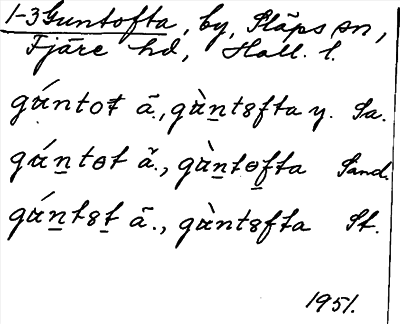 1-3 Guntofta, by, Släps sn,
Fjäre hd, Hall. l.
gú̇ntoŧ ä., gùn̲tɞfta y. Sa.
gún̲tɵt ä., gùn̲tɵf̲ta Sand.
gún̲tɞt̲ ä., gùntɞfta St.
1951.